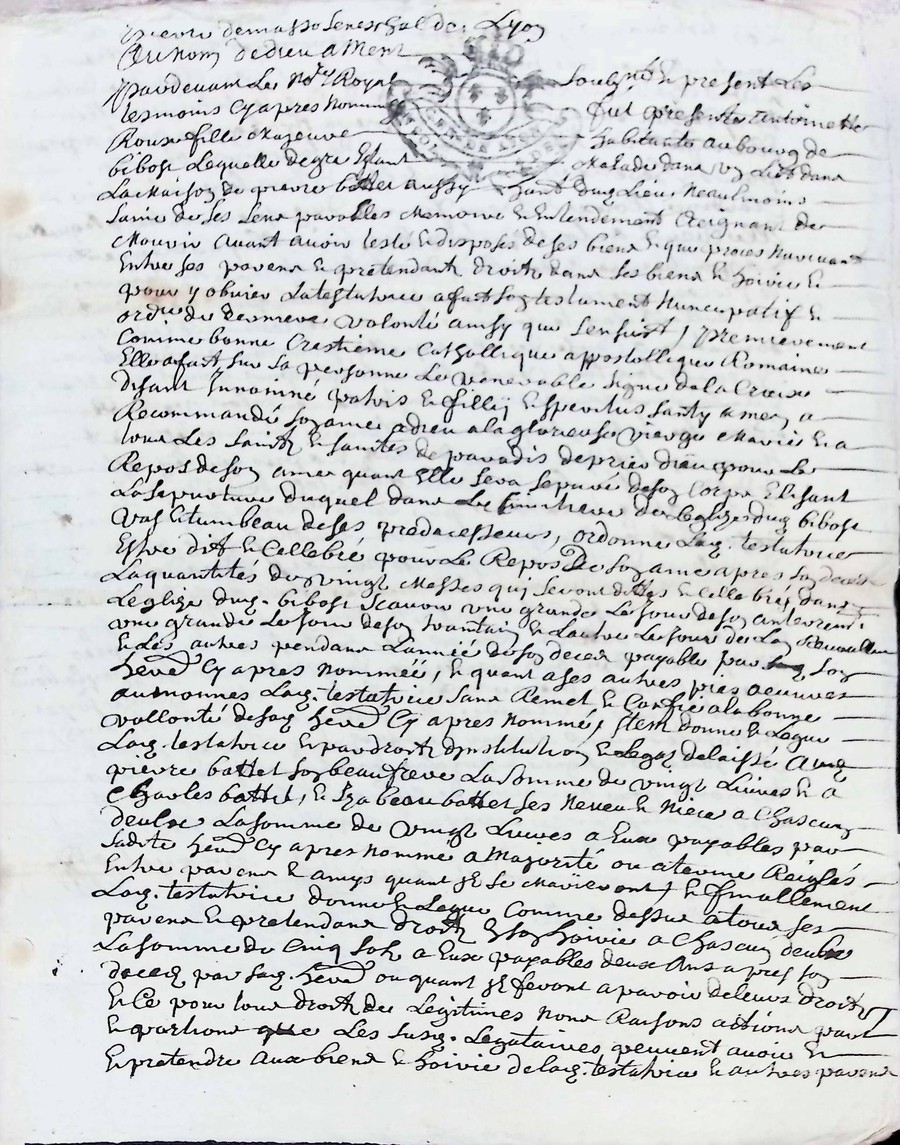 pierre demasso seneschal de Lyon
Au nom de dieu amen
pardevant Le No.re Royal soubz.né & present Les
tesmoins Cy apres Nommés fut presente antoinette
Roux fille habitante au bourg de
bibost Laquelle degre Estant Malade dans un Lict dans
La Maison de pierre battet aussy hant dud Lieu Neaulmoins
saine de ses sens parolles Memoire & Entendement Creignant de
Mourir avant avoir testé & disposés de ses biens & que proces Nuvinant
Entre ses parens & pretendantz droitz dans ses biens & hoirie &
pour y obvier La testatrice a fait son testament Nuncupatif &
ord.re de derniere volonté ainsy que sensuit / premierement
Comme bonne Crestiene Catholique appostollique Romaine
Elle a fait sur sa personne Le venerable signe de la Croix
disant In nominé patris & fillij & speritus santy amen a
Recommandé son ame a dieu a la glorieuse vierge Marie & a
tous Les saintz & saintes de paradis de prier dieu pour Le
Repos de son ame quant Elle sera sepuré de son Corps Elisant
La sepurture duquel dans Le Simitiere de Leglize dud bibost
vas & tumbeau de ses predacesseurs, ordonne Lad. testatrice
Estre dit & Cellebré pour Le Repos De son ame apres son deces
La quantités de vingt Messes qui seront dittes & cellebrés dans
Leglize dud. bibost scavoir une grande Le jour de son anterrement
une grande Le jour de son trantain & Lautre Le jour de Lan Revollu
& Les autres pendant L'année de son deces payable par son
here cy apres nommée, & quant a ses autres pies oeuvres
aumonnes Lad. testatrice sans Remet & Confie a la bonne
vollonté de sad here Cy apres nommé, Item donne & Legue
Lad. testatrice & par droit d'institution & Legaz delaissé aud
pierre battet son beau frere La somme de vingt Livres & a
Charles battet, & Izabeau battet ses Neveu & Niece a Chascung
deulx La somme de vingt Livres a Eux payables par
sadite here Cy apres Nommé a Majorité ou a terme Reiglés
Entre parens & amys quant Ilz se Marieront / & finallement
Lad. testatrice donne & Legue Comme dessus a tous ses
parens & pretendans droitz En son hoirie a Chascung deulx
La somme de Cinq solz a Eux payables deux Ans apres son
deces par sad. here ou quant Ilz feront aparoir de leurs droitz
& Ce pour tous droitz de Legitimes Noms Raisons actions partz
& portions que Les susd. Legataires peuvent avoir &
& pretendre aux biens & hoirie de lad. testatrice & autres parens